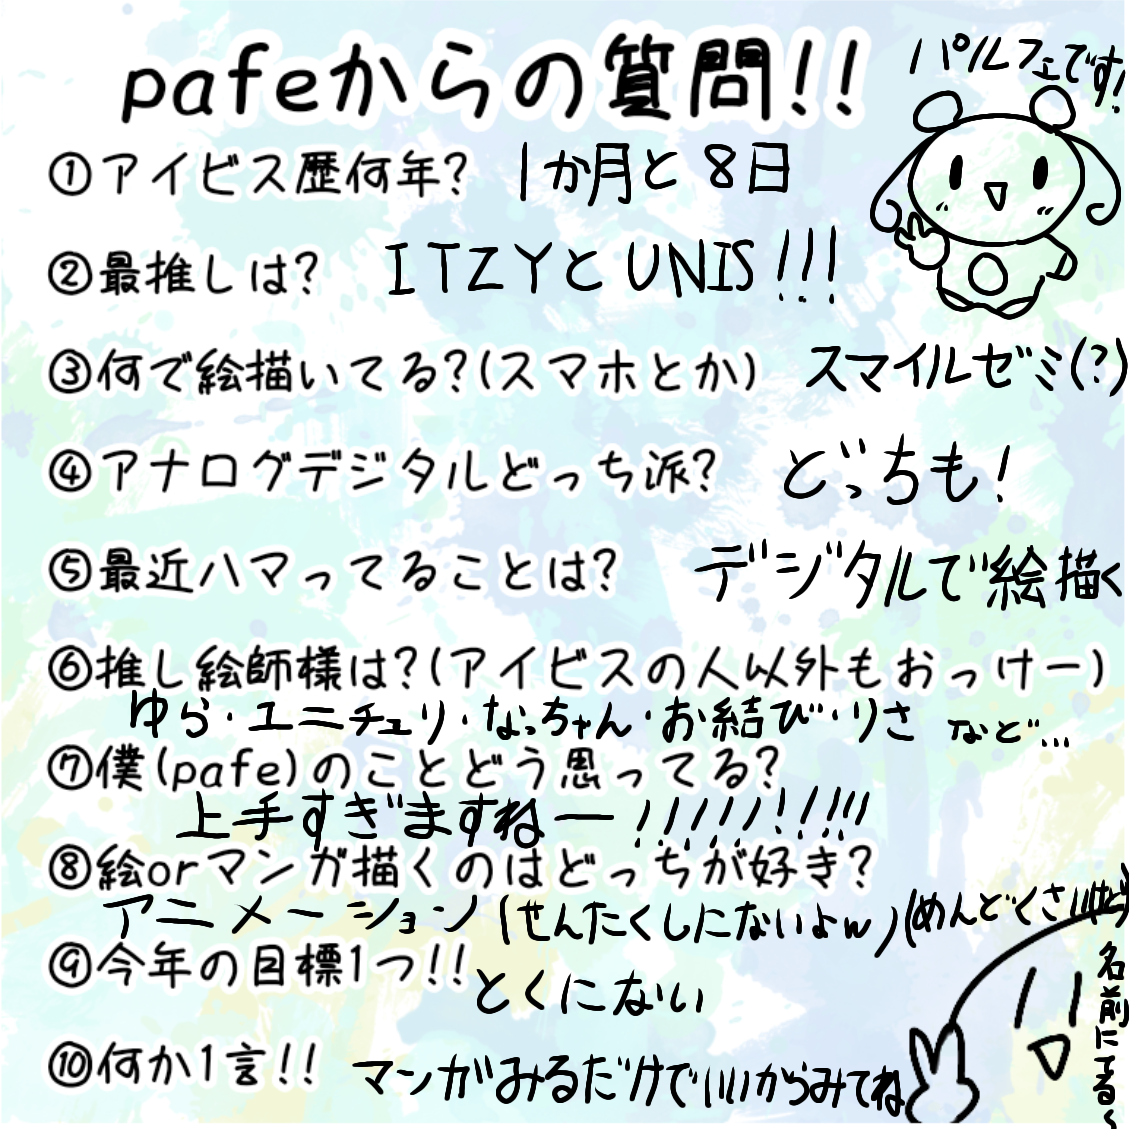 pafeからの質問!!
パルフェです!
①アイビス歴何年? 1か月と8日
②最推しは? ITZYとUNIS!!!
③何で絵描いてる?(スマホとか) スマイルゼミ(?)
④アナログデジタルどっち派? どっちも!
⑤最近ハマってることは? デジタルで絵描く
⑥推し絵師様は?(アイビスの人以外もおっけー)
ゆら・エニチェリ・なっちゃん・お結び・りさ など...
⑦僕(pafe)のことどう思ってる?
上手すぎますねー!!!!!!!!!!
⑧絵orマンガ描くのはどっちが好き?
アニメーション(せんたくしにないよw)(めんどくさいけど)
⑨今年の目標1つ!! とくにない
⑩何か1言!! マンガみるだけでいいからみてね
名前にてる~